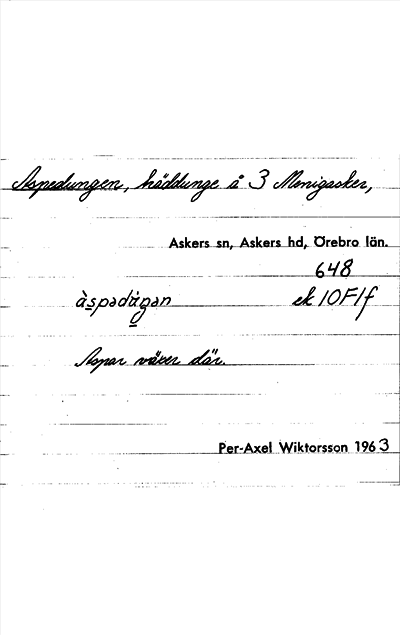 Aspedungen, träddunge å 3 Menigasker,
Askers sn, Askers hd, Örebro län.
648
àspədúŋən ek 10F1f
Aspar växer där.
Per-Axel Wiktorsson 1963